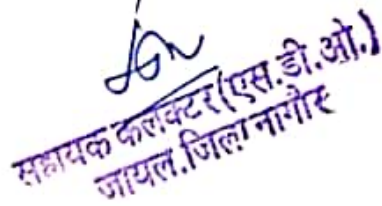 सहायक कलक्टर(एस.डी.ओ.)
जायल.जिला नागौर